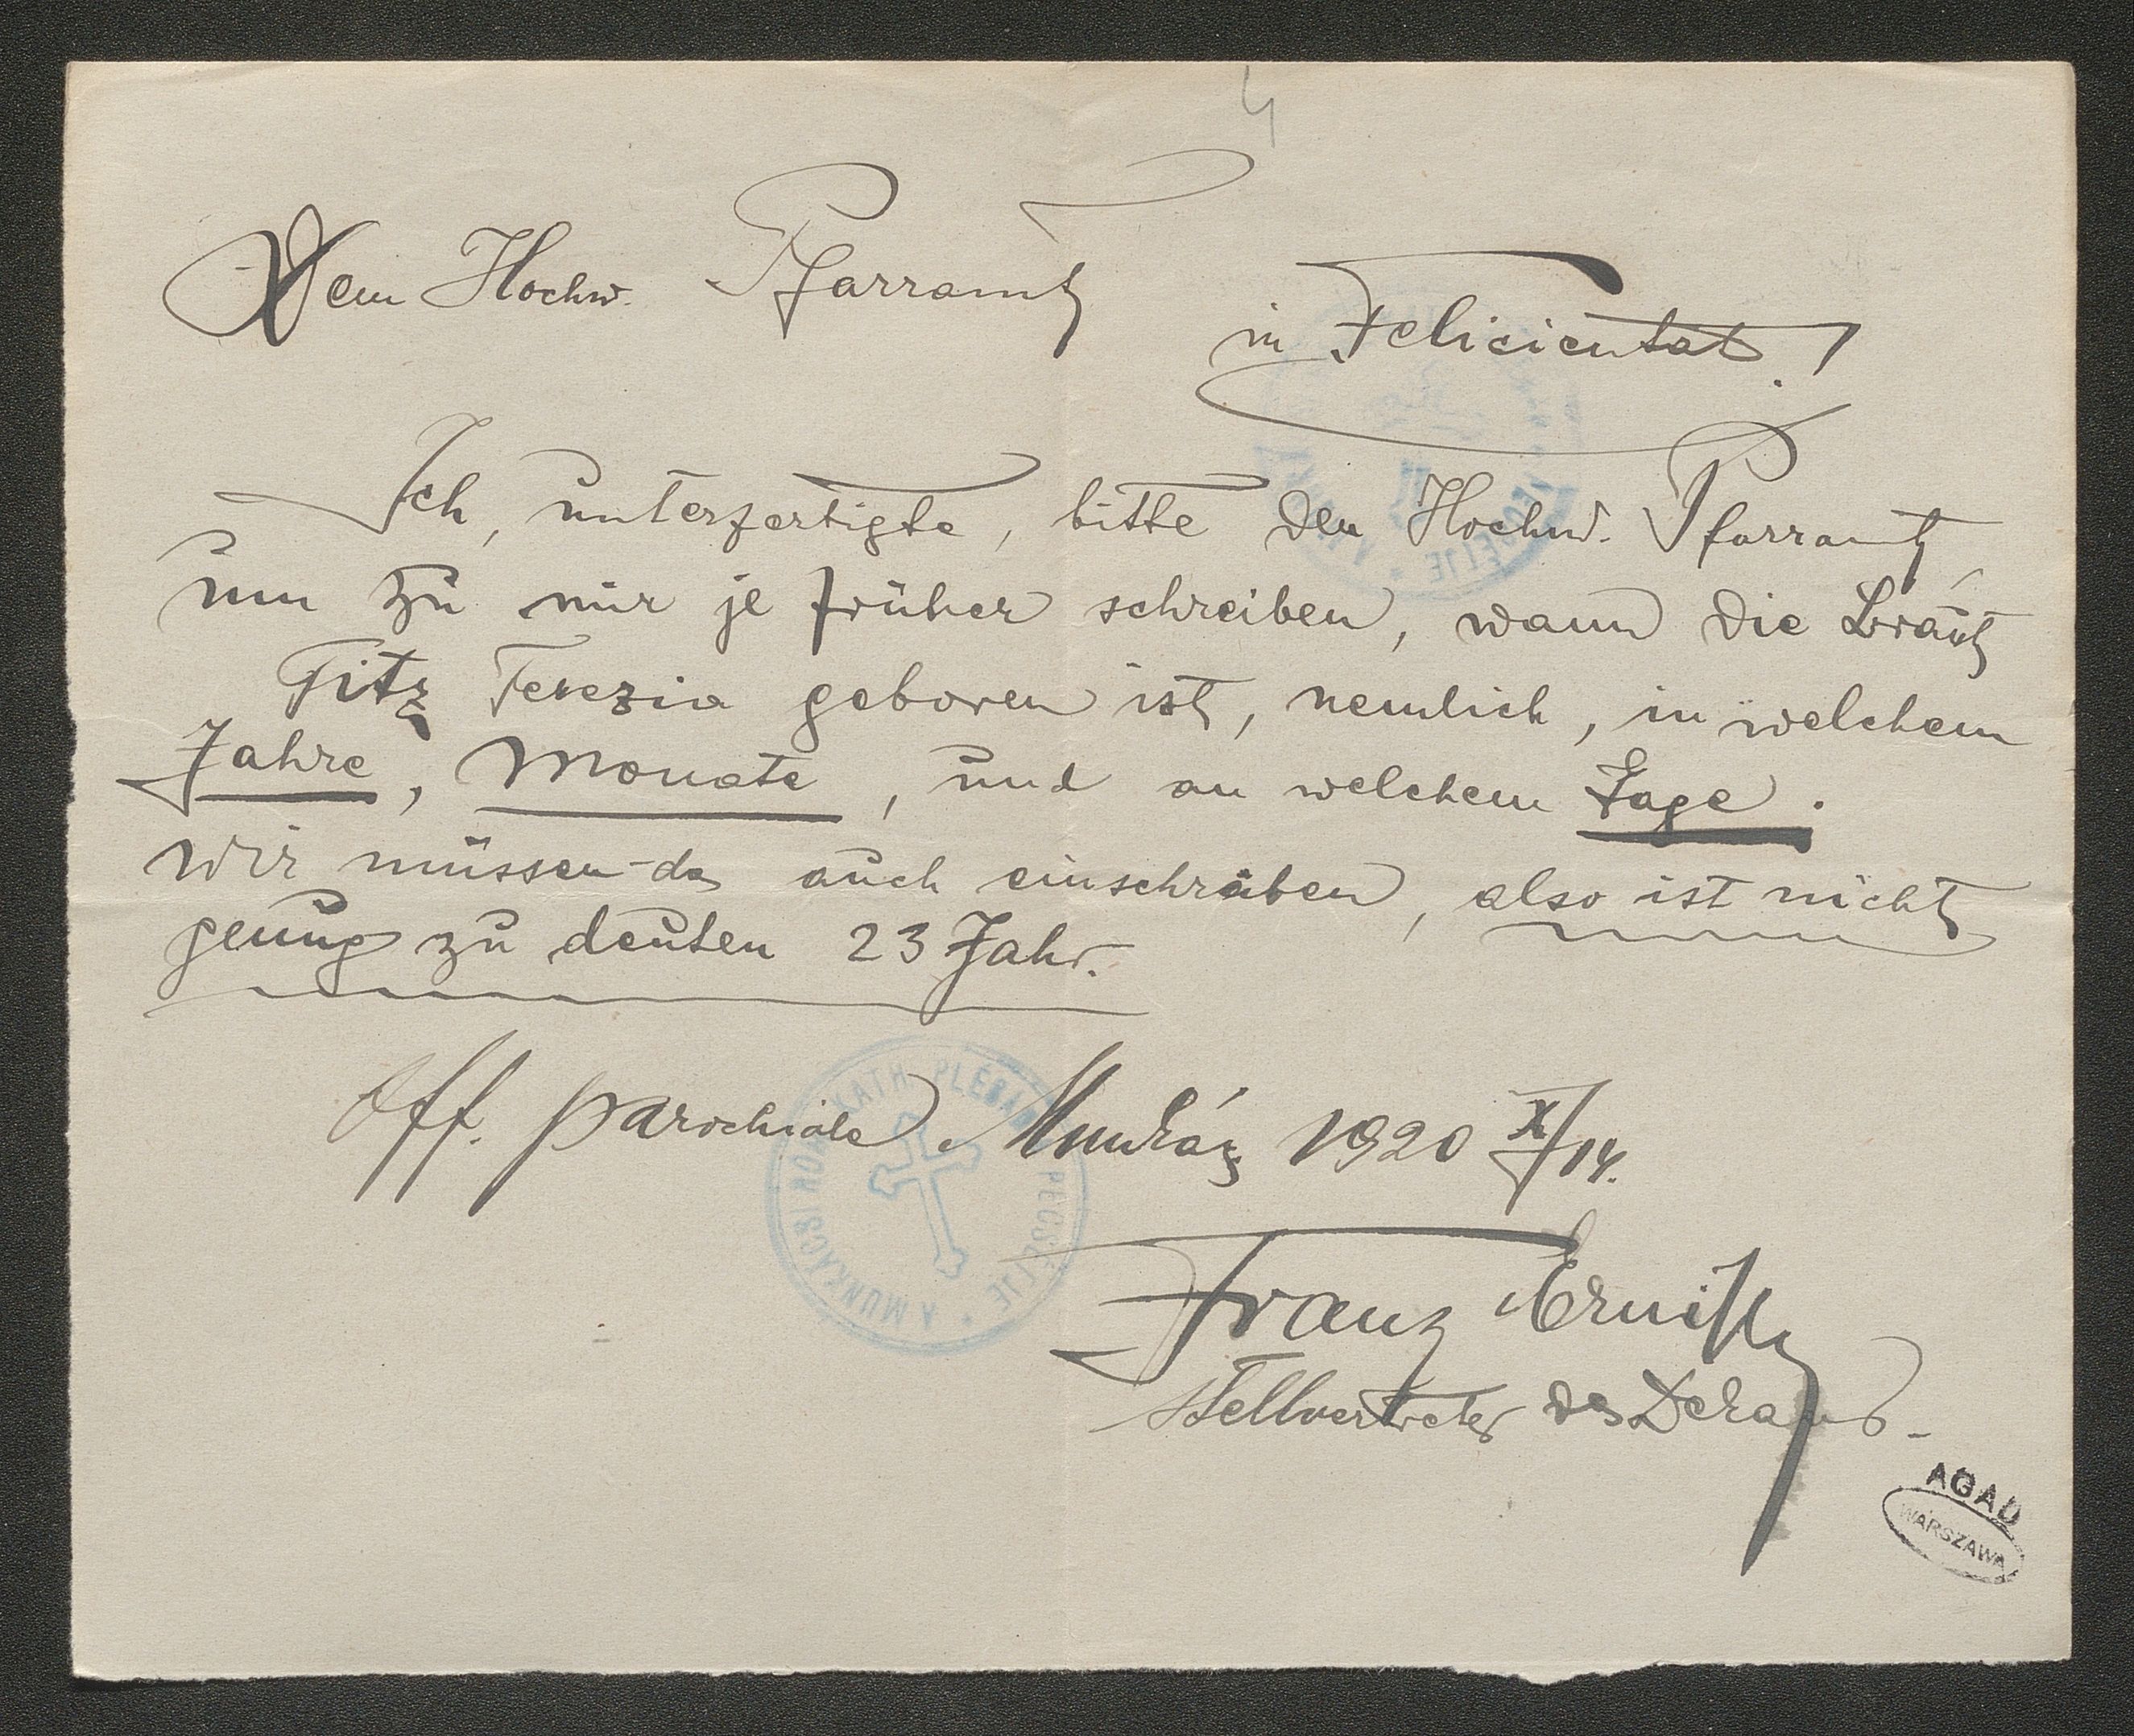 4
Dem Hochw. Pfarramt
in Felicientat!
Ich, unterfertigte, bitte den Hochw. Pfarramt,
um zu mir je früher schreiben, wann die Braut
Titz Terezia geboren ist, nemlich, in welchem
Jahre, Monate, und an welchem Tage.
Wir müssen das auch einschräben, also ist nicht
genug zu deuten 23 Jahr.
Off. parochiale Munkács 1920 X/14.
A MUNKÁCSI ROM. KATH. PLÉBÁNIA PECSÉTJE
Franz
Stellvertreter des Dekans.
AGAD
WARSZAWA